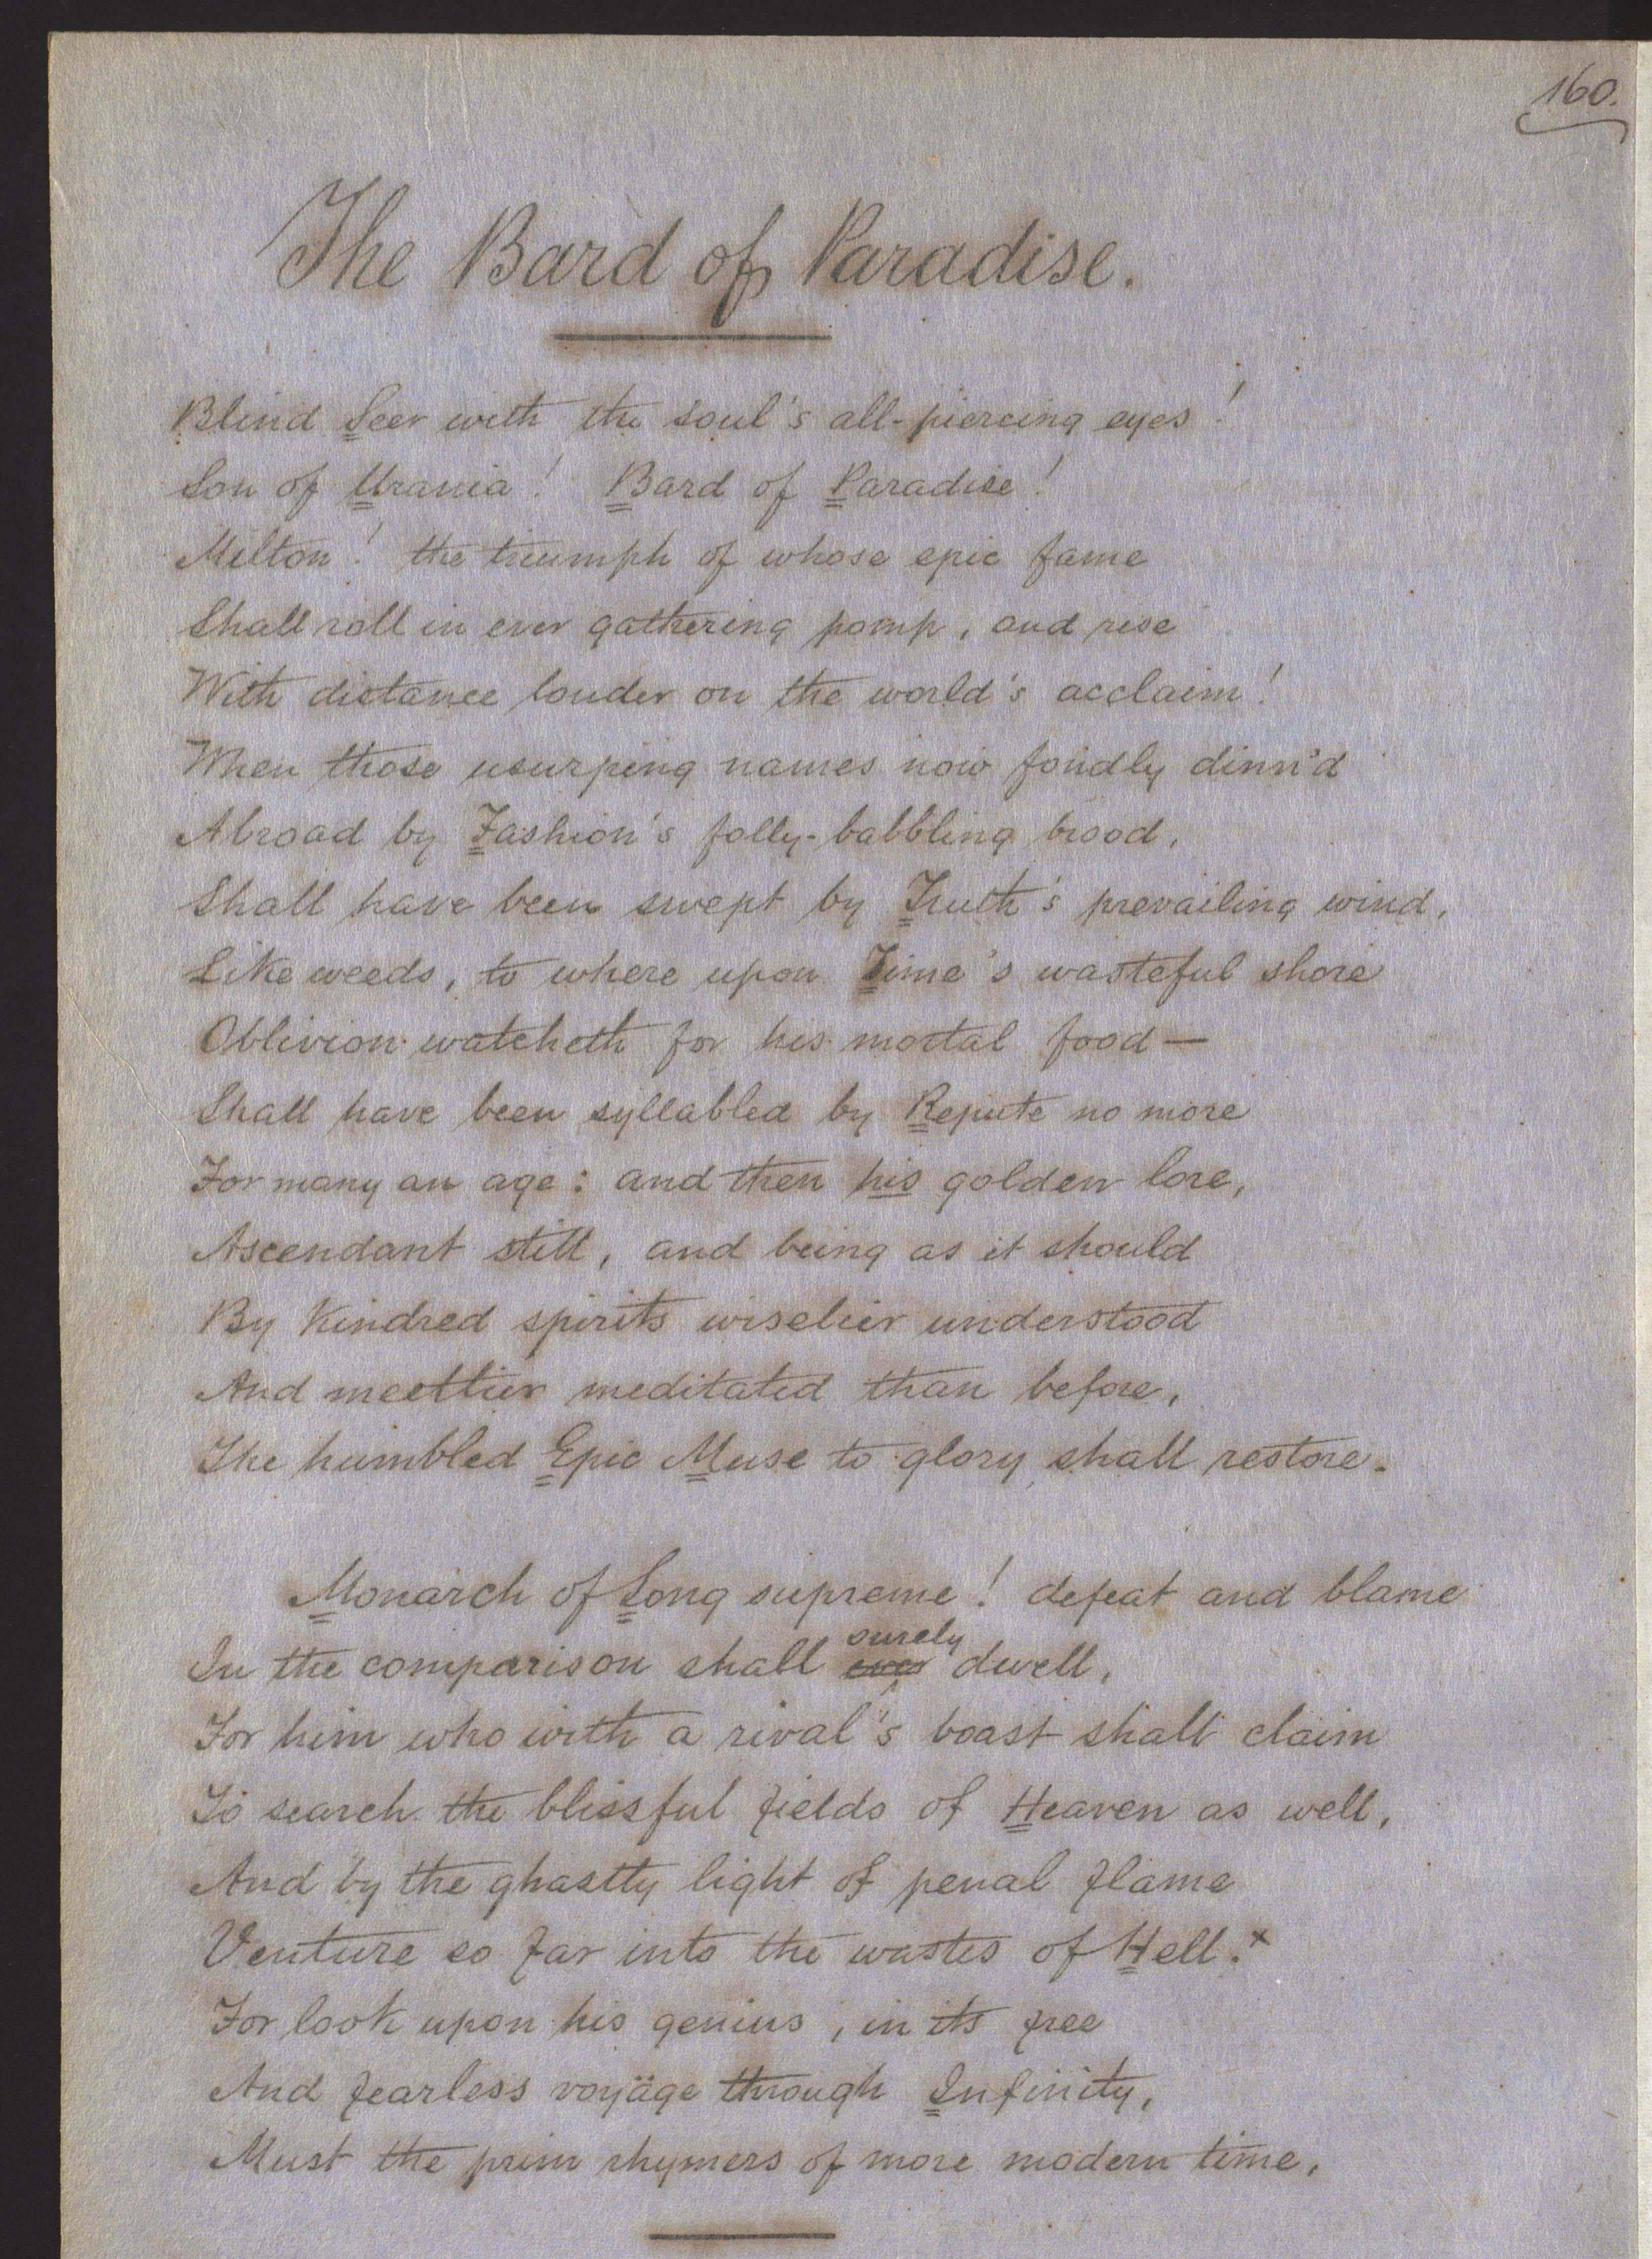 160.
The Bard of Paradise.
Blind Seer with the soul's all-piercing eyes!
Son of Urania! Bard of Paradise!
Milton! the triumph of whose epic fame
Shall roll in ever gathering pomp, and rise
With distance louder on the world's acclaim!
When those usurping names now fondly dinn'd
Abroad by Fashion's folly-babbling brood,
Shall have been swept by Truth's prevailing wind,
Like weeds, to where upon Time's wasteful shore
Oblivion watcheth for his mortal food—
Shall have been syllabled by Repute no more
For many an age: and then his golden lore,
Ascendant still, and being as it should
By kindred spirits wiselier understood
And meetlier meditated than before,
The humbled Epic Muse to glory shall restore.
Monarch of Song supreme! defeat and blame
surely
In the comparison shall ever dwell,
For him who with a rival's boast shall claim
To search the blissful fields of Heaven as well,
And by the ghastly light of penal flame
Venture so far into the wastes of Hell.x
For look upon his genius, in its free
And fearless voyäge through Infinity,
Must the prim rhymers of more modern time,